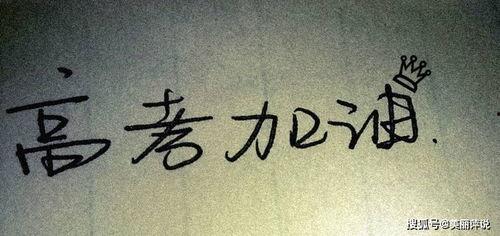 高考加油.
搜狐号@美丽